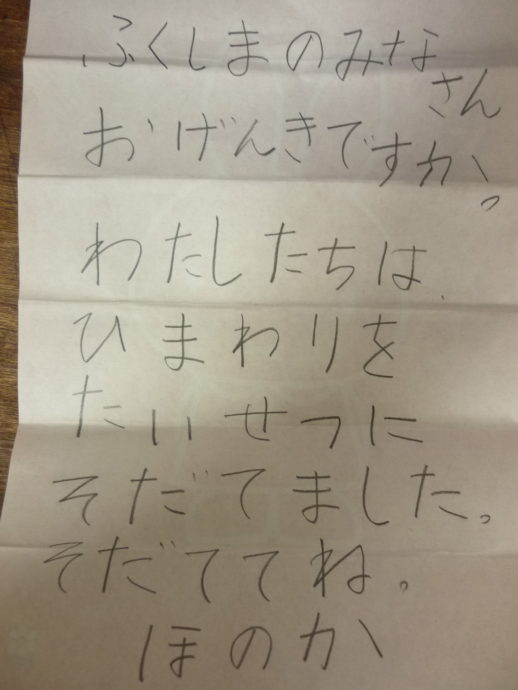 ふくしまのみな
さん
おげんきですか。
わたしたちは
ひまわりを
たいせつに
そだてました。
そだててね。
ほのか